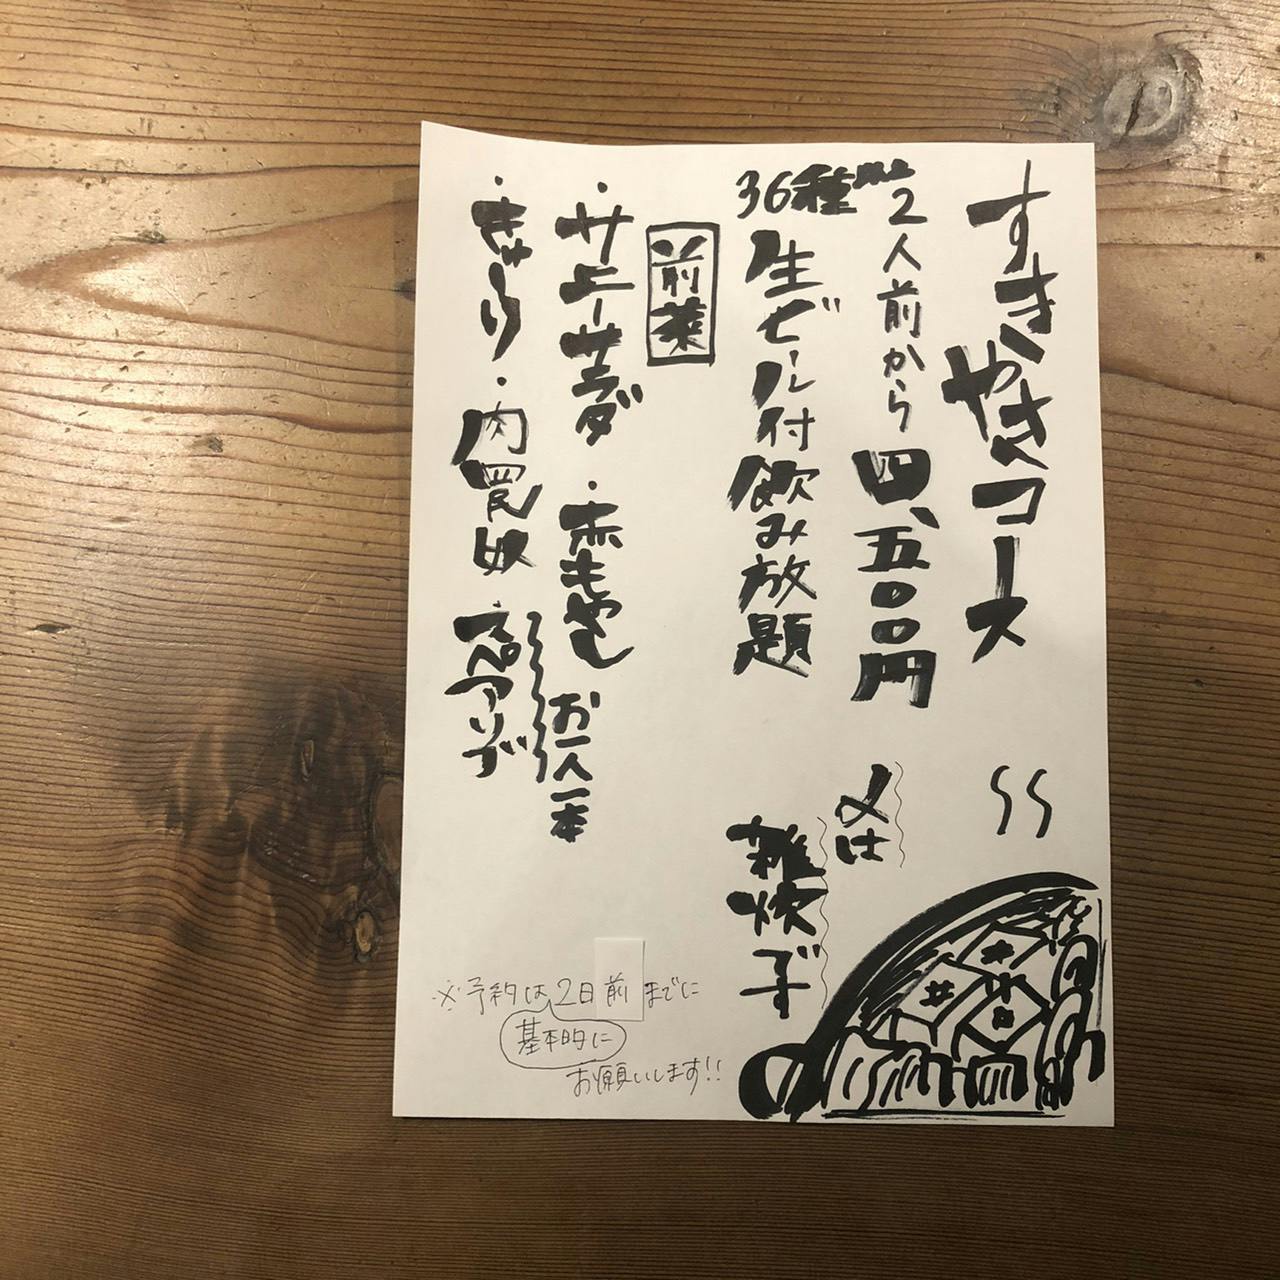 すきやきコース
2人前から四、五〇〇円
又は
36種
生ビール付飲み放題
雑炊
前菜
・サラダ
・赤もやし
お一人一本
・きゅうり
・スペアリブ
※予約は2日前までに
基本的に
お願いします!!